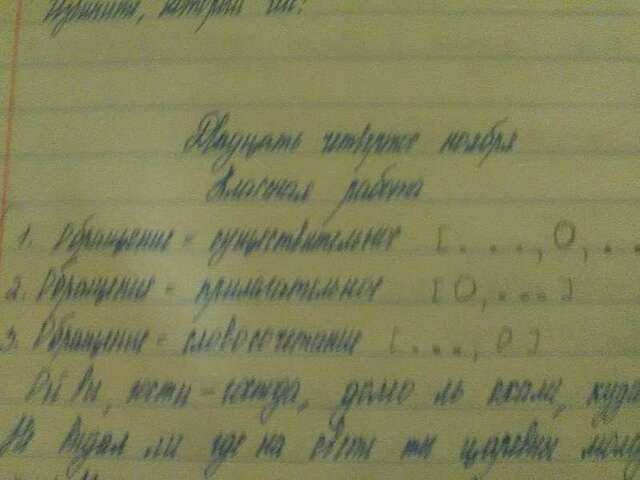 Извините, который час?
Двадцать четвертое ноября
Классная работа
1. Обращение = существительное [ . . . , О, . .
2. Обращение = прилагательное [О, . . . ]
3. Обращение = словосочетание [ . . . , О ]
Ой вы, гости - господа, долго ль ехали, куда
Не видал ли где на свете ты царевны молод